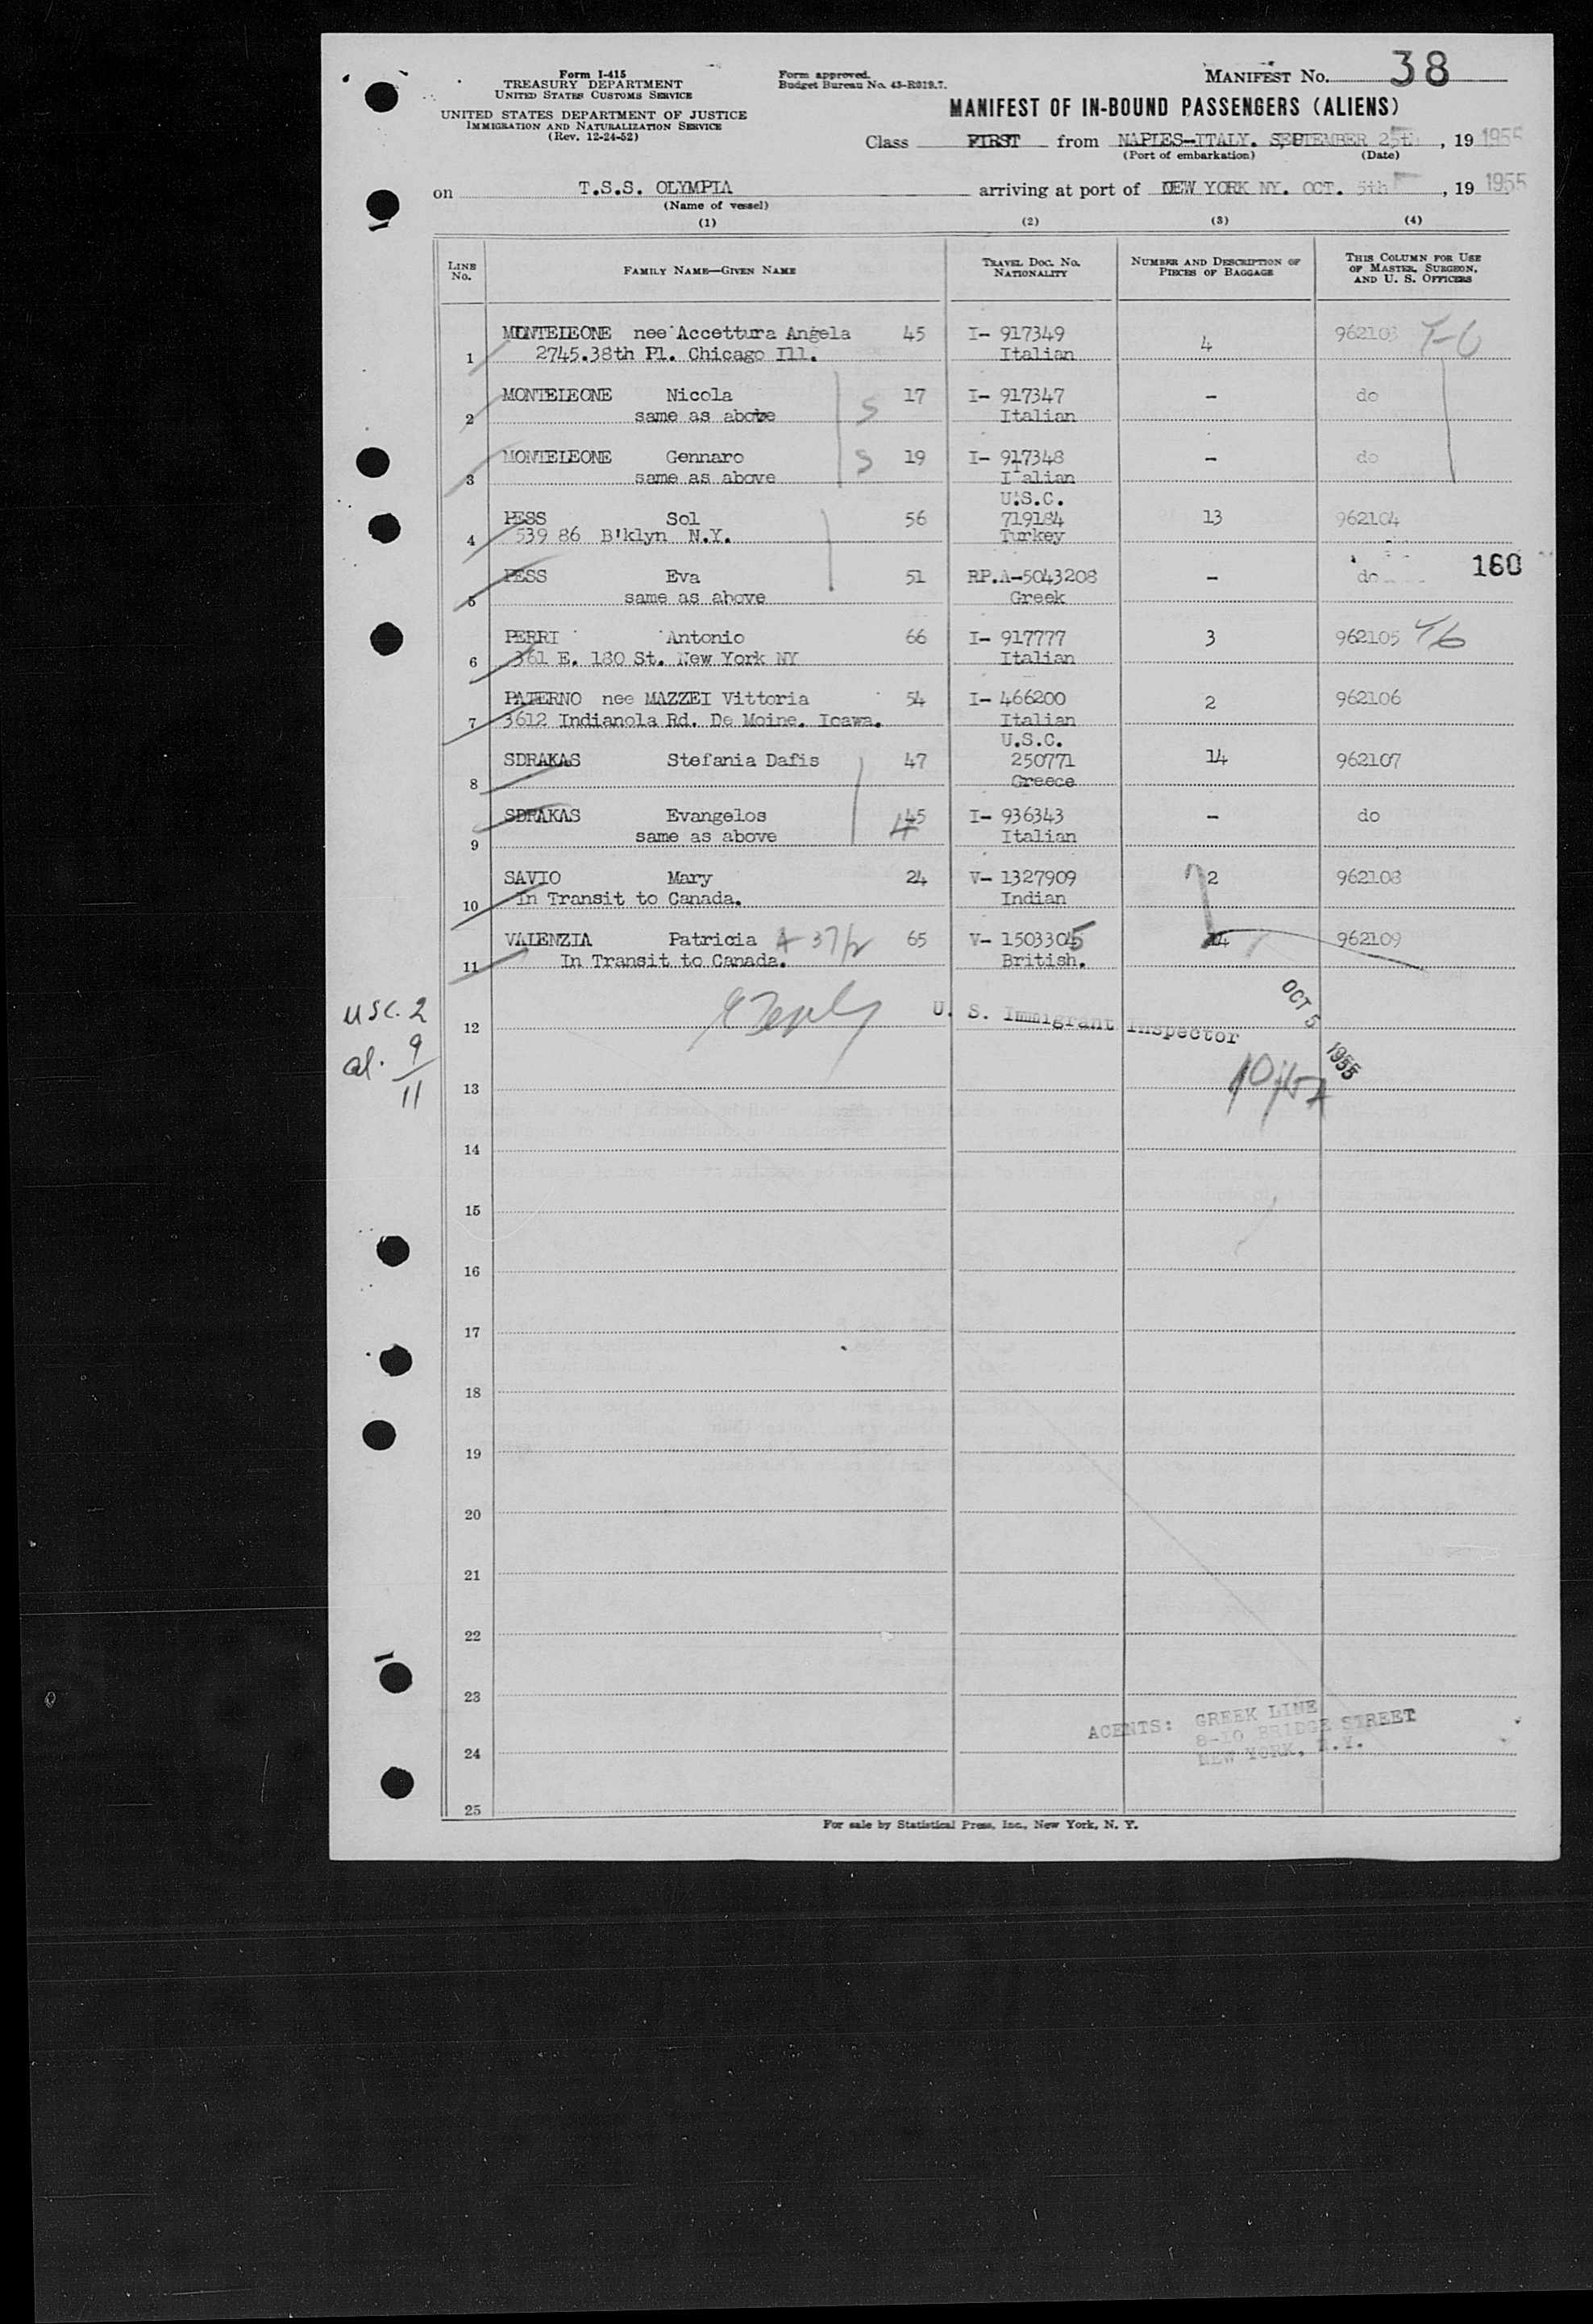 Form I-415
TREASURY DEPARTMENT
UNITED STATES CUSTOMS SERVICE
UNITED STATES DEPARTMENT OF JUSTICE
IMMIGRATION AND NATURALIZATION SERVICE
(Rev. 12-24-52)
Form approved.
Budget Bureau No. 43-R019.7.
MANIFEST No. 38
MANIFEST OF IN-BOUND PASSENGERS (ALIENS)
Class FIRST from NAPLES-ITALY. SEPTEMBER 25th, 19 1955
(Port of embarkation) (Date)
on T.S.S. OLYMPIA arriving at port of NEW YORK NY. OCT. 5th, 19 1955
(Name of vessel)
(1) (2) (3) (4)
LINE No. FAMILY NAME—GIVEN NAME TRAVEL DOC. NO. NATIONALITY NUMBER AND DESCRIPTION OF PIECES OF BAGGAGE THIS COLUMN FOR USE OF MASTER, SURGEON, AND U. S. OFFICERS
MONTELEONE nee Accettura Angela 45 I- 917349 4 962103
1 2745.38th Pl. Chicago Ill. Italian
MONTELEONE Nicola 17 I- 917347 - do
2 same as above S Italian
MONTELEONE Gennaro S 19 I- 917348 - do
3 same as above Italian
U.S.C.
PESS Sol 56 719184 13 962104
4 539 86 B'klyn N.Y. Turkey
160
PESS Eva 51 RP.A-5043208 - do
5 same as above Greek
PERRI Antonio 66 I- 917777 3 962105
6 361 E. 180 St. New York NY Italian
PATERNO nee MAZZEI Vittoria 54 I- 466200 2 962106
7 3612 Indianola Rd. De Moine. Ioawa. Italian
U.S.C.
SDRAKAS Stefania Dafis 47 250771 14 962107
8 Greece
SDRAKAS Evangelos 45 I- 936343 - do
9 same as above Italian
SAVIO Mary 24 V- 1327909 2 962108
10 In Transit to Canada. Indian
VALENZIA Patricia 65 V- 1503305 14 962109
11 In Transit to Canada. British.
usc. 2
al. 9
11
12 U. S. Immigrant Inspector
OCT 5 1955
13
14
15
16
17
18
19
20
21
22
23
ACENTS: GREEK LINE
8-10 BRIDGE STREET
24 NEW YORK, N.Y.
25
For sale by Statistical Press, Inc., New York, N. Y.